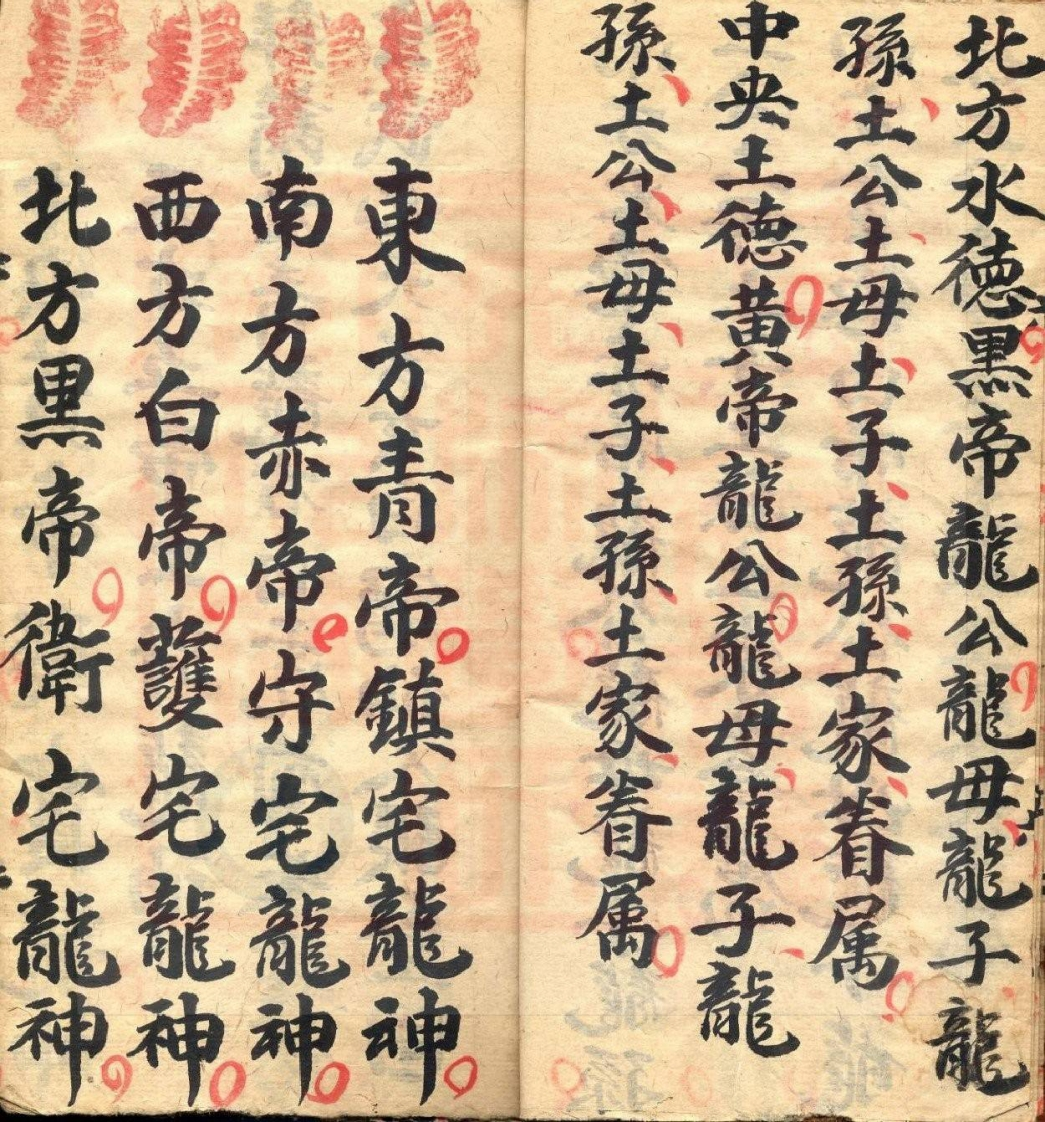 北方水德黒帝龍公龍母龍子龍
孫土公土母土子土孫土家眷属
中央土德黄帝龍公龍母龍子龍
孫土公土母土子土孫土家眷属
東方青帝鎮宅龍神
南方赤帝守宅龍神
西方白帝護宅龍神
北方黒帝衛宅龍神